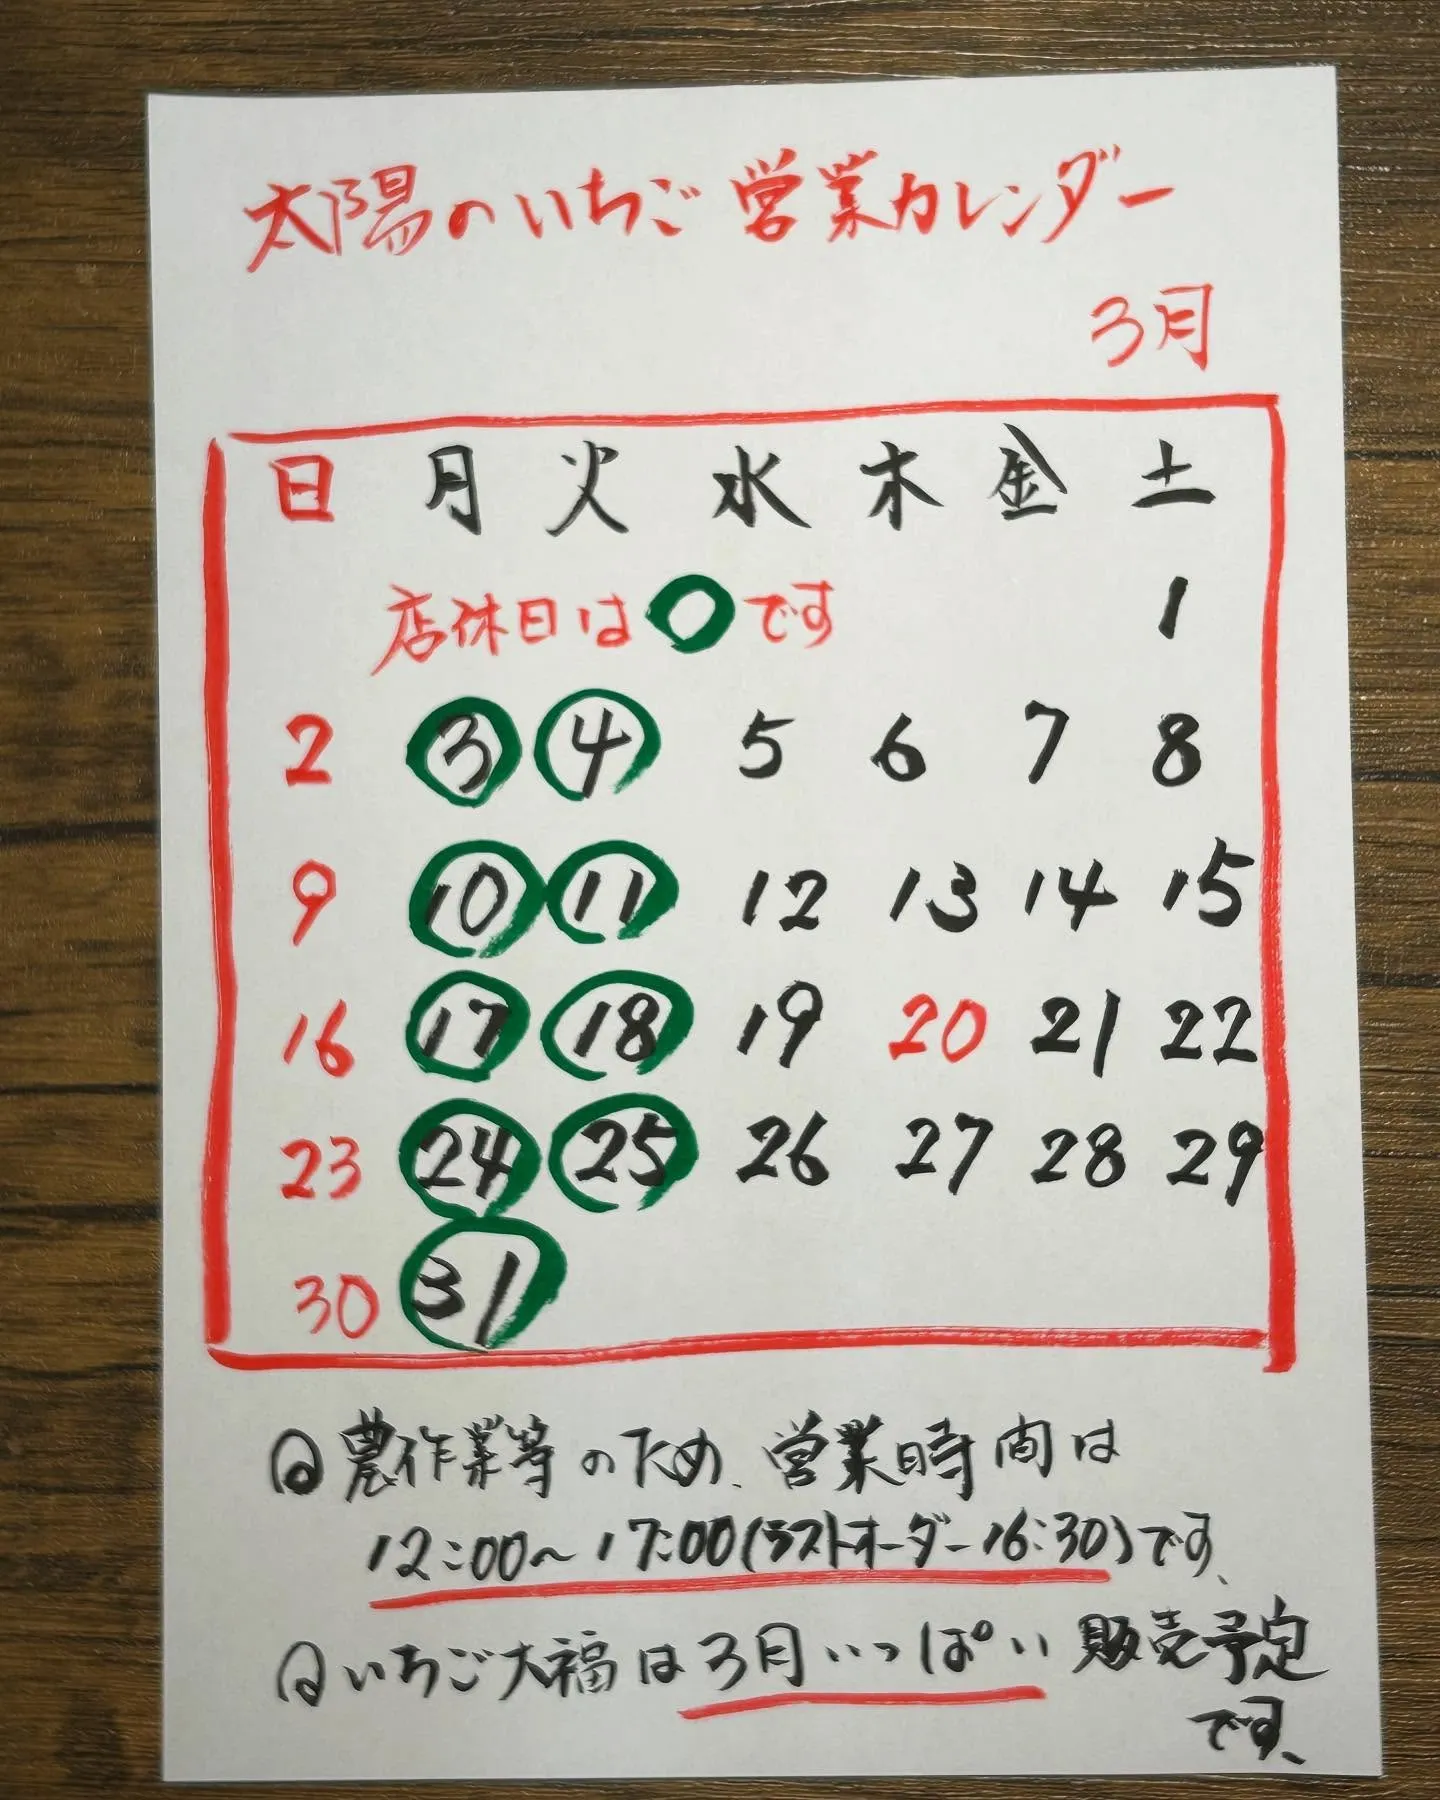 太陽のいちご営業カレンダー
3月
日 月 火 水 木 金 土
店休日は○です 1
2 3 4 5 6 7 8
9 10 11 12 13 14 15
16 17 18 19 20 21 22
23 24 25 26 27 28 29
30 31
農作業等のため、営業時間は
12:00〜17:00(ラストオーダー16:30)です、
いちご大福は3月いっぱい販売予定
です、